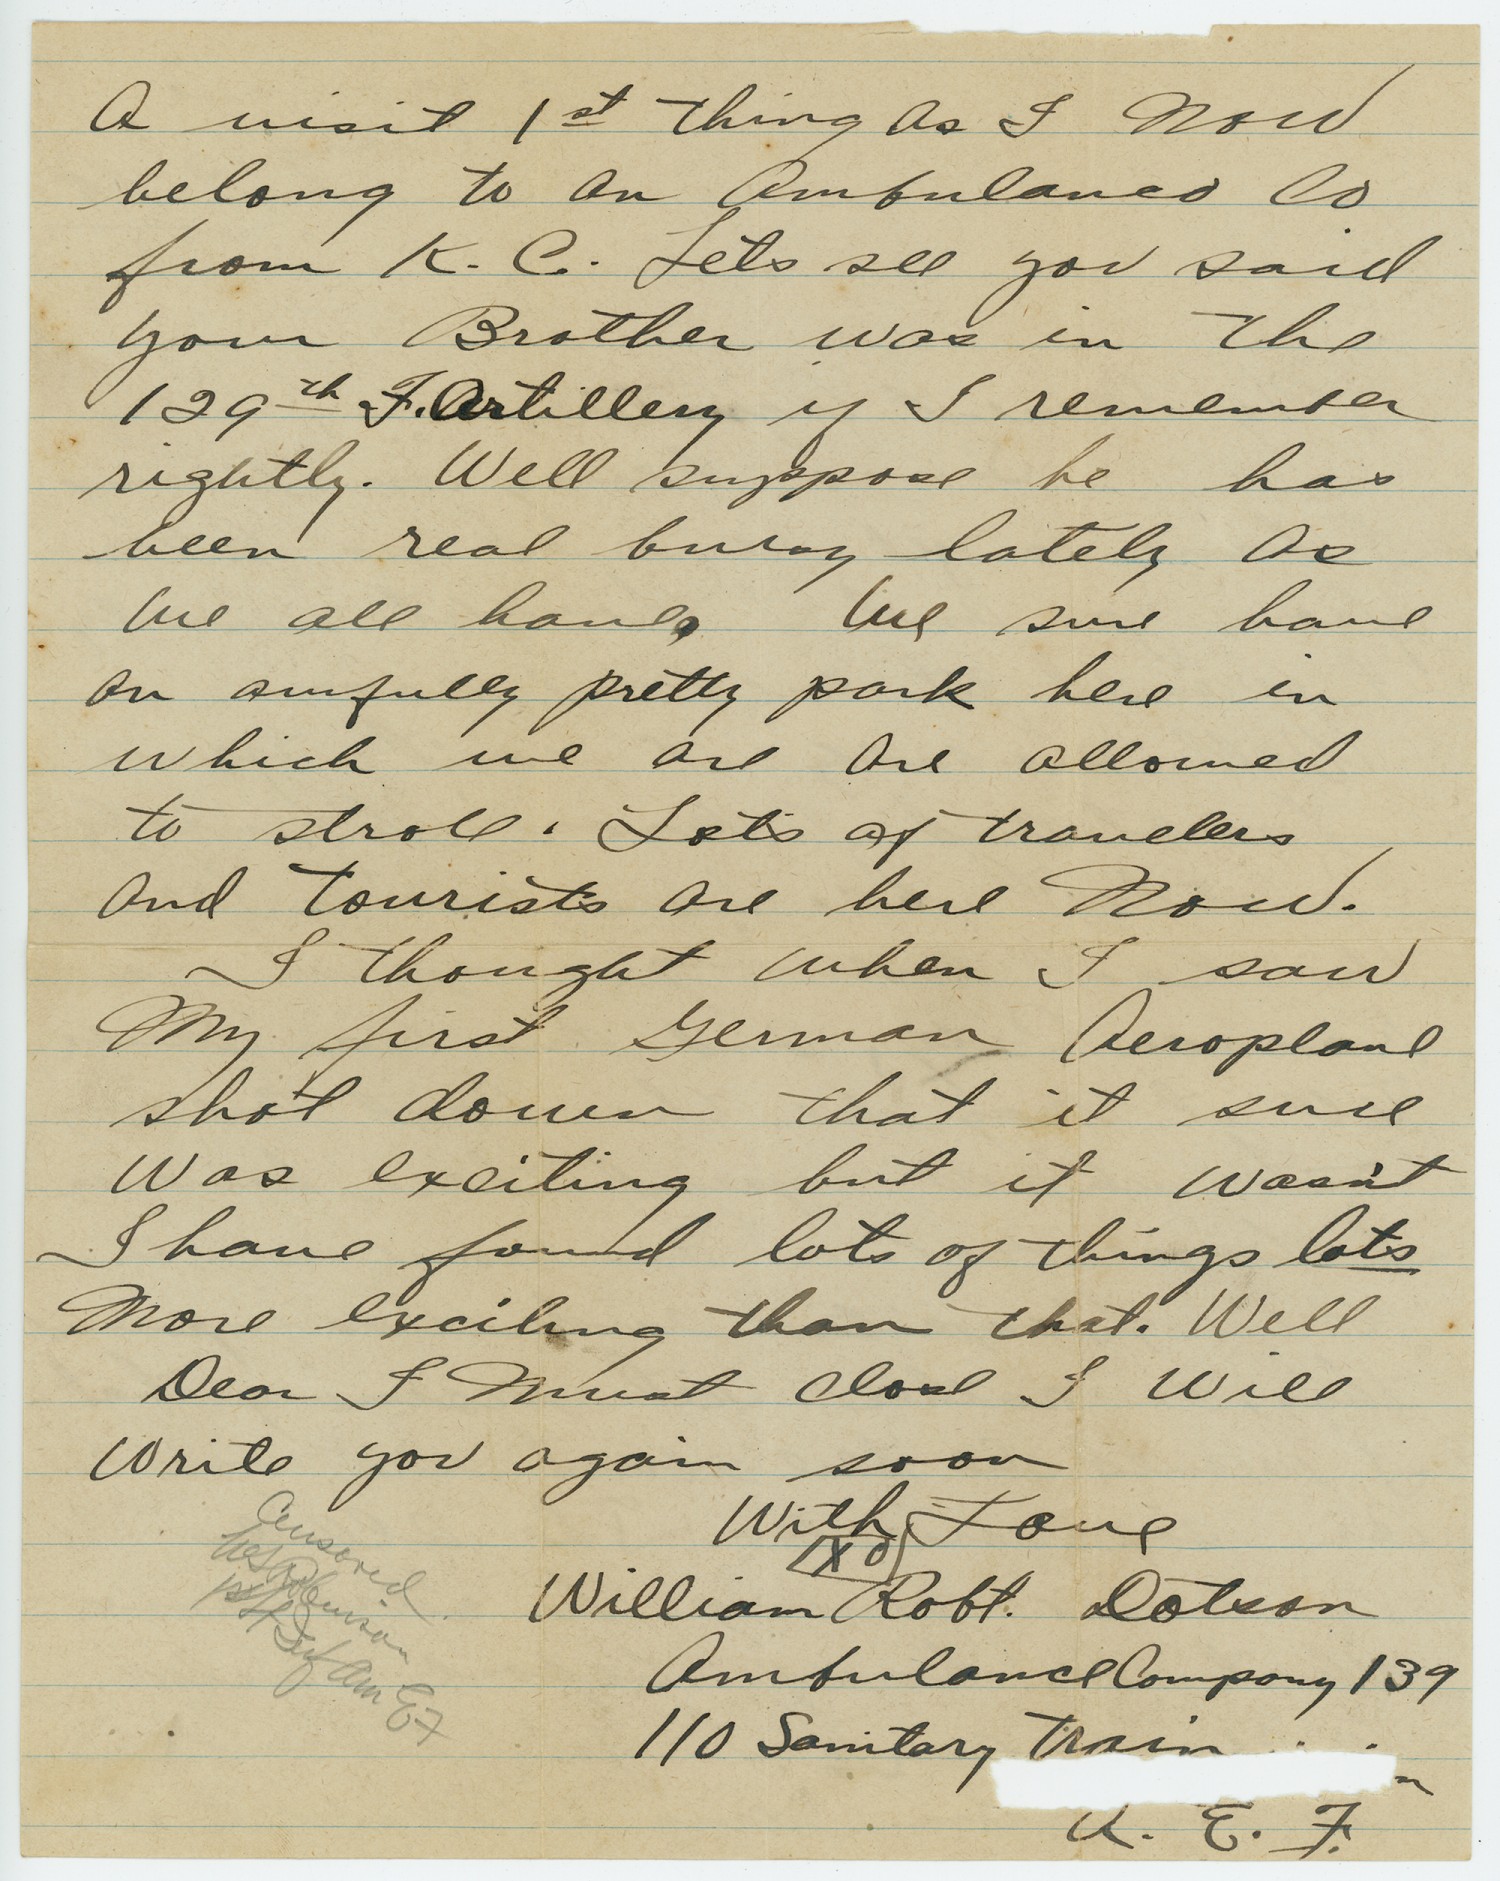 A visit 1st thing as I Now
belong to an Ambulance Co
from K. C. Lets see you said
your Brother was in the
129th F. Artillery if I remember
rightly. Well suppose he has
been real busy lately as
We all have. We sure have
an awfully pretty park here in
which we are are allowed
to stroll. Lots of travelers
and tourists are here Now.
I thought when I saw
My first German Aeroplane
shot down that it sure
was exciting but it wasn't
I have found lots of things lots
More exciting than that. Well
Dear I Must close I Will
Write you again soon
With Love
X O
William Robt. Dotson
Ambulance Company 139
110 Sanitary Train
A. E. F.
Censored
Robinson
1st Lt